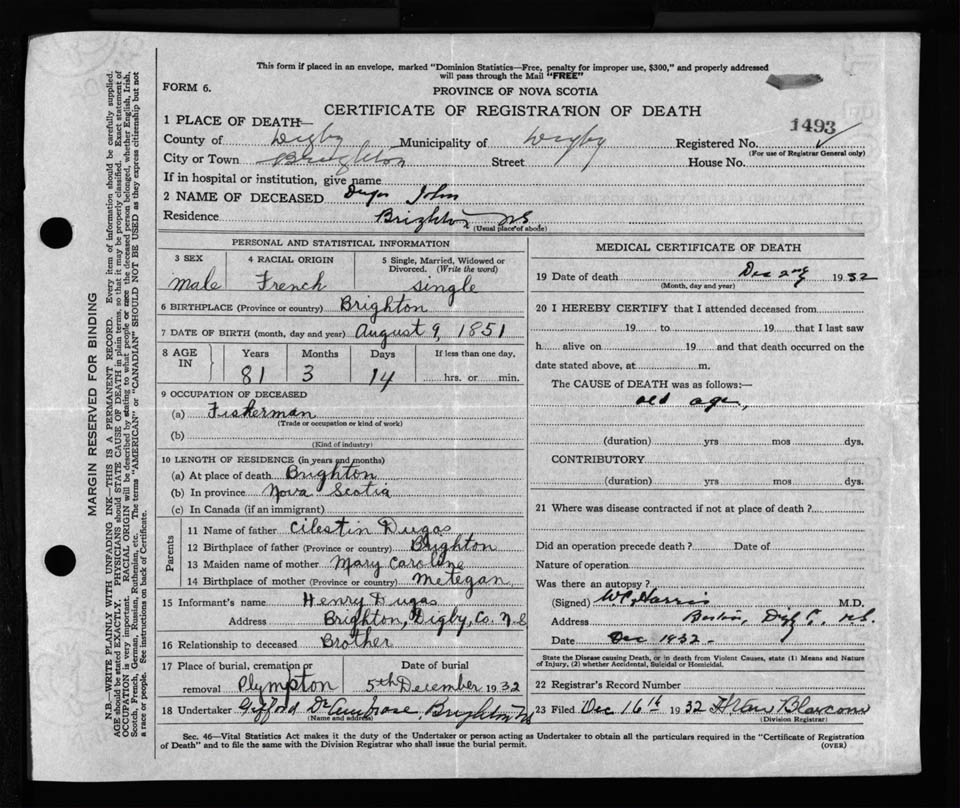 This form if placed in an envelope, marked "Dominion Statistics—Free, penalty for improper use, $300," and properly addressed
will pass through the Mail "FREE"
FORM 6.
PROVINCE OF NOVA SCOTIA
CERTIFICATE OF REGISTRATION OF DEATH
1493
1 PLACE OF DEATH—
County of Digby Municipality of Digby Registered No.
(For use of Registrar General only)
City or Town Brighton Street House No.
If in hospital or institution, give name
2 NAME OF DECEASED John
Residence Brighton N.S.
(Usual place of abode)
PERSONAL AND STATISTICAL INFORMATION
3 SEX 4 RACIAL ORIGIN 5 Single, Married, Widowed or Divorced. (Write the word)
male French single
6 BIRTHPLACE (Province or country) Brighton
7 DATE OF BIRTH (month, day and year) August 9, 1851
8 AGE IN Years Months Days If less than one day,
81 3 14 hrs. or min.
9 OCCUPATION OF DECEASED
(a) Fisherman
(Trade or occupation or kind of work)
(b)
(Kind of industry)
10 LENGTH OF RESIDENCE (in years and months)
(a) At place of death Brighton
(b) In province Nova Scotia
(c) In Canada (if an immigrant)
Parents
11 Name of father Cilestin Dugas
12 Birthplace of father (Province or country) Brighton
13 Maiden name of mother Mary Caroline
14 Birthplace of mother (Province or country) Metegan
15 Informant's name Henry Dugas
Address Brighton, Digby, Co. N.S
16 Relationship to deceased Brother
17 Place of burial, cremation or removal Plympton Date of burial 5th December 1932
18 Undertaker Gifford Brighton N.S
(Name and address)
MEDICAL CERTIFICATE OF DEATH
19 Date of death Dec 2nd 1932
(Month, day and year)
20 I HEREBY CERTIFY that I attended deceased from
19 to 19 that I last saw
h alive on 19 and that death occurred on the
date stated above, at m.
The CAUSE OF DEATH was as follows:—
old age,
(duration) yrs mos dys.
CONTRIBUTORY
(duration) yrs mos dys.
21 Where was disease contracted if not at place of death?
Did an operation precede death? Date of
Nature of operation
Was there an autopsy?
(Signed) Harris M.D.
Address N.S.
Date Dec 1932
State the Disease causing Death, or in death from Violent Causes, state (1) Means and Nature
of Injury, (2) whether Accidental, Suicidal or Homicidal.
22 Registrar's Record Number
23 Filed Dec 16th 1932
(Division Registrar)
Sec. 46—Vital Statistics Act makes it the duty of the Undertaker or person acting as Undertaker to obtain all the particulars required in the "Certificate of Registration
of Death" and to file the same with the Division Registrar who shall issue the burial permit.
(OVER)
MARGIN RESERVED FOR BINDING
N.B.—WRITE PLAINLY WITH UNFADING INK—THIS IS A PERMANENT RECORD. Every item of information should be carefully supplied.
AGE should be stated EXACTLY. PHYSICIANS should STATE CAUSE OF DEATH in plain terms, so that it may be properly classified. Exact statement of
OCCUPATION is very important. RACIAL ORIGIN will be described by stating to what people or race the deceased person belonged, whether English, Irish,
Scotch, French, German, Russian, Ruthenian, etc. The terms "AMERICAN" or "CANADIAN" SHOULD NOT BE USED as they express citizenship but not
a race or people. See instructions on back of Certificate.